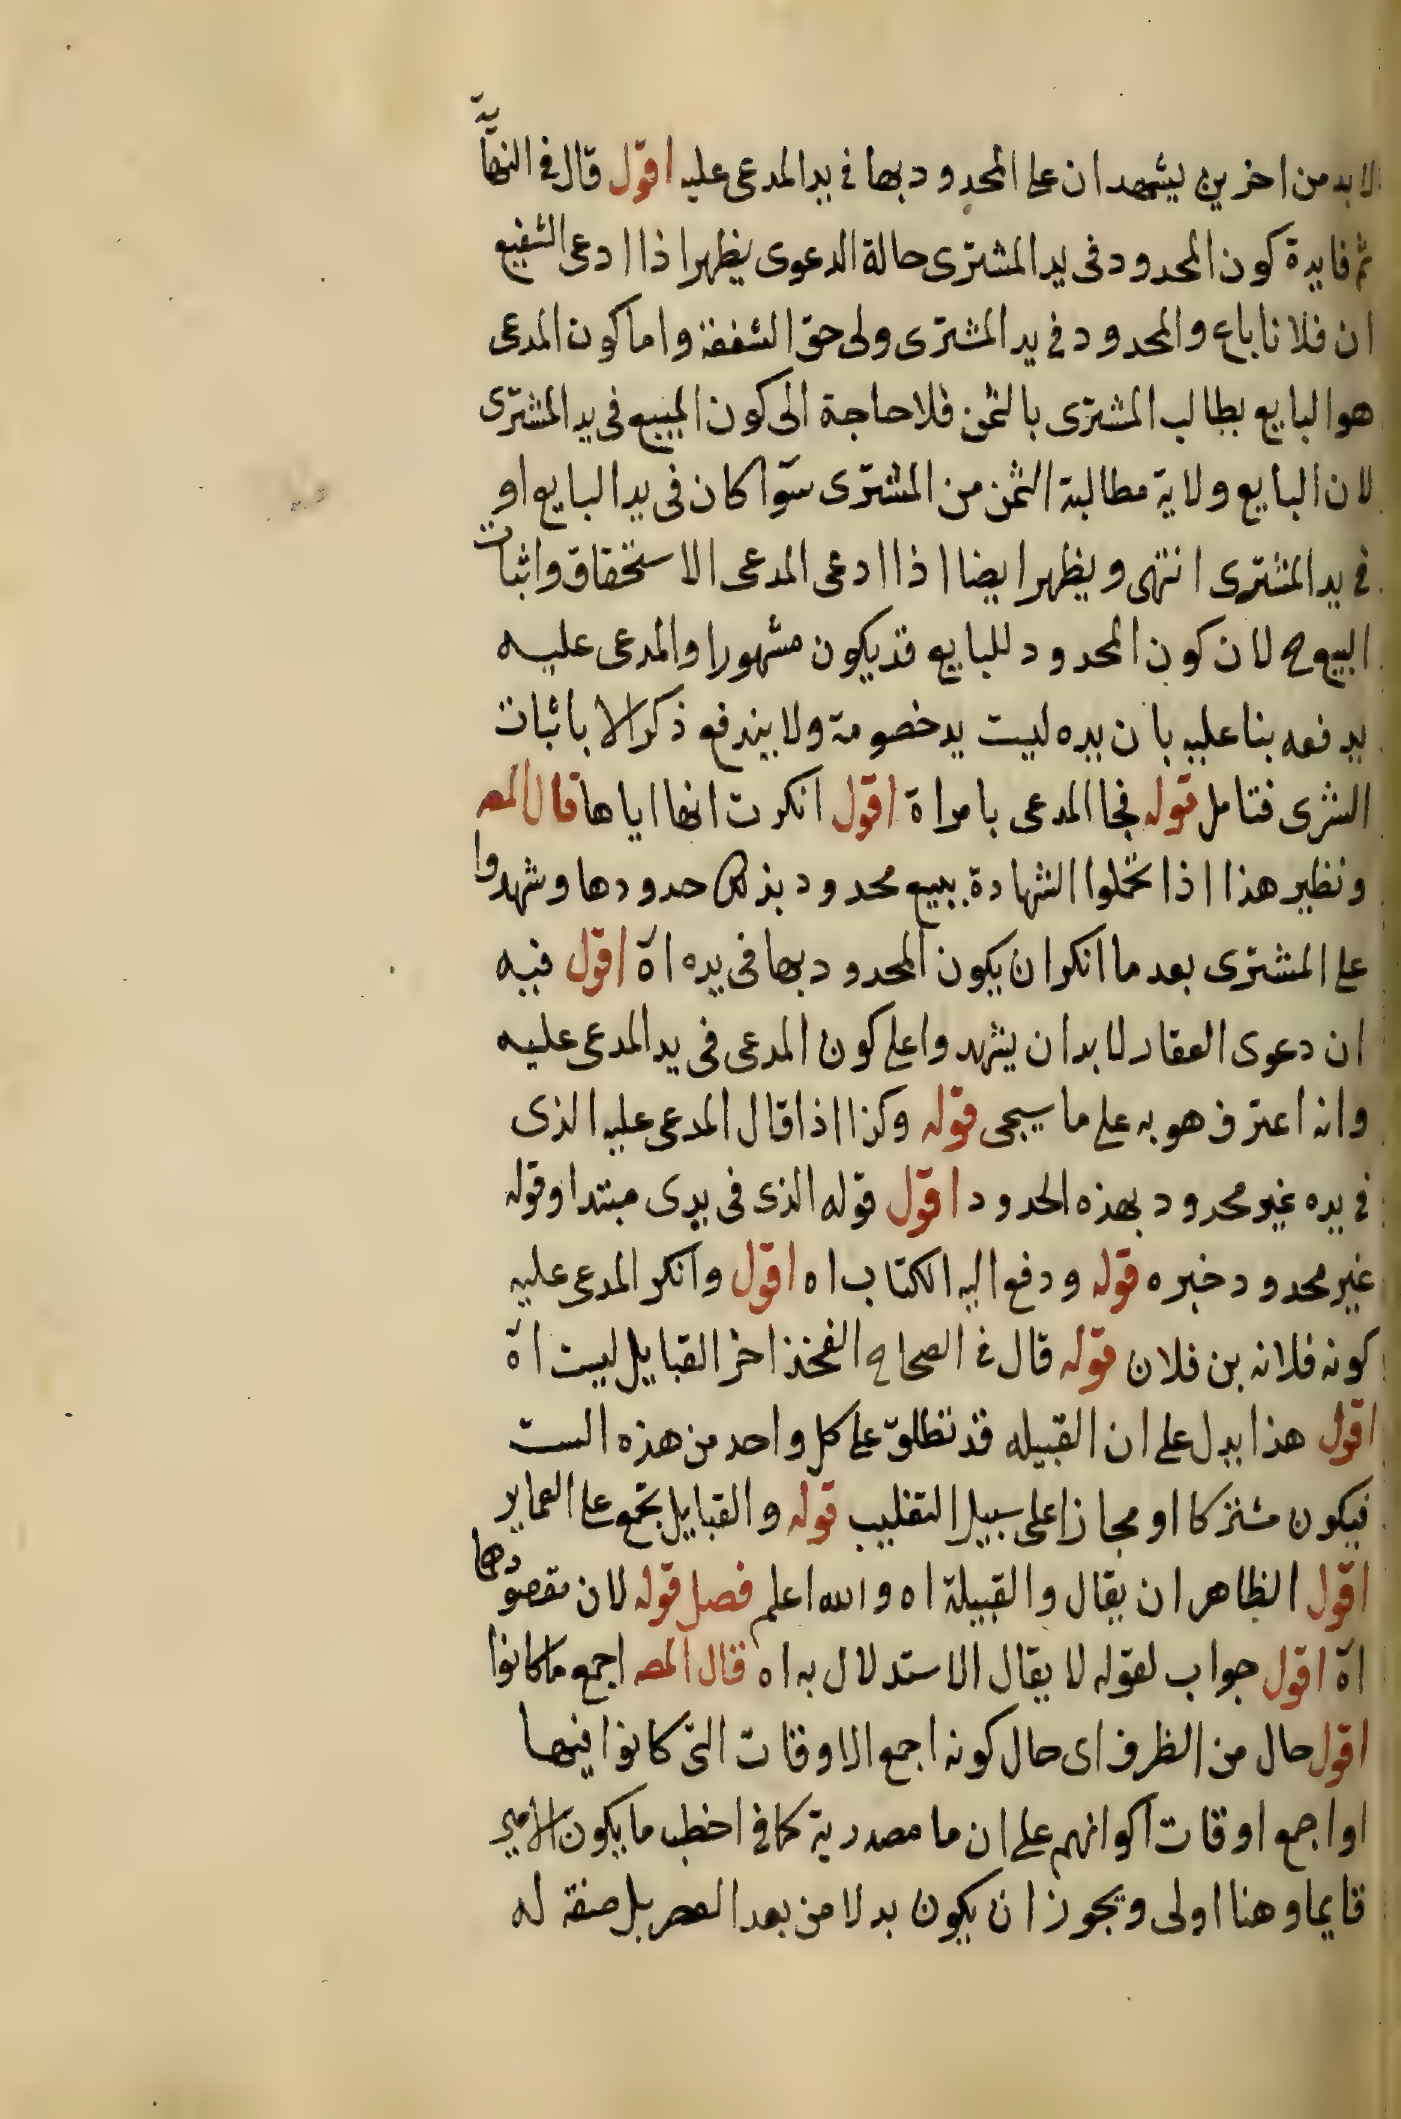 لابد من اخرين يشهدان على المحدود بها في يد المدعى عليه اقول قال في النهاية
ثم فايدة كون المحدود في يد المشترى حالة الدعوى يظهر اذا ادعى الشفيع
ان فلانا باع والمحدود في يد المشترى ولى حق الشفعة واما كون المدعى
هو البايع يطالب المشترى بالثمن فلا حاجة الى كون المبيع في يد المشترى
لان البايع ولاية مطالبة الثمن من المشترى سوآ كان في يد البايع او
في يد المشترى انتهى ويظهر ايضا اذا ادعى المدعى الاستحقاق واثبات
البيع ح لان كون المحدود للبايع قد يكون مشهورا والمدعى عليه
يدفعه بنا عليه بان يده ليست يد خصومة ولا يندفع ذكر الا باثبات
الشرى فتامل قوله فجا المدعى بامراة اقول انكرت انها اياها قال المص
ونظير هذا اذا تحملوا الشهادة ببيع محدود بذكر حدودها وشهدوا
على المشترى بعد ما انكر ان يكون المحدود بها في يده اه اقول فيه
ان دعوى العقار لا بد ان يشهدوا على كون المدعى في يد المدعى عليه
وانه اعترف هو به على ما سيجى قوله وكذا اذا قال المدعى عليه الذى
في يده غير محدود بهذه الحدود اقول قوله الذى في يدى مبتدا وقوله
غير محدود خبره قوله ودفع اليه الكتاب اه اقول وانكر المدعى عليه
كونه فلانه بن فلان قوله قال في الصحاح الفخذ اخر القبايل ليست اه
اقول هذا يدل على ان القبيله قد تطلق على كل واحد من هذه الست
فيكون مشتركا او مجازا على سبيل التغليب قوله والقبايل تجمع على العماير
اقول الظاهر ان يقال والقبيلة اه والله اعلم فصل قوله لان مقصودها
اه اقول جواب لقوله لا يقال الاستدلال به اه قال المص اجمع ما كانوا
اقول حال من الظرف اى حال كونه اجمع الاوقات التى كانوا فيها
او اجمع اوقات اكوانهم على ان ما مصدرية كما في اخطب ما يكون الامير
قايما وهنا اولى ويجوز ان يكون بدلا من بعد العصر بل صفة له